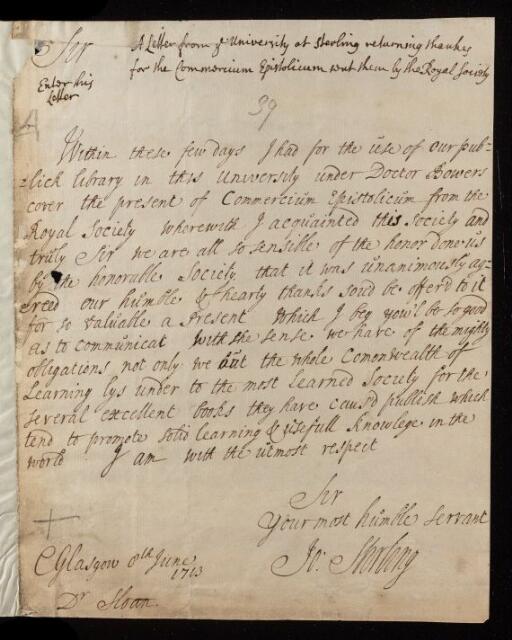 Sir
A Letter from ye University at Sterling returning thankes
for the Commercium Epistolicum sent them by the Royal Society
Enter this
Letter
39
Within these few days I had for the use of our pub=
=lick library in this University under Doctor Bowers
cover the present of Commercium Epistolicum from the
Royal Society wherewith I acquainted this Society and
truly Sir we are all so sensible of the honor done us
by the honorable Society that it was unanimously ag=
=reed our humble & hearty thanks sou'd be offer'd to it
for so valuable a Present which I beg you'l be so good
as to communicat with the sense we have of the mighty
obligations not only we but the whole Comonwealth of
Learning lys under to the most Learned Society for the
several excellent books they have caus'd publish which
tend to promote solid learning & usefull knowlege in the
world I am with the utmost respect
Sir
Your most humble servant
Jo: Stirling
Glasgow 8th June
1713
Dr Sloan